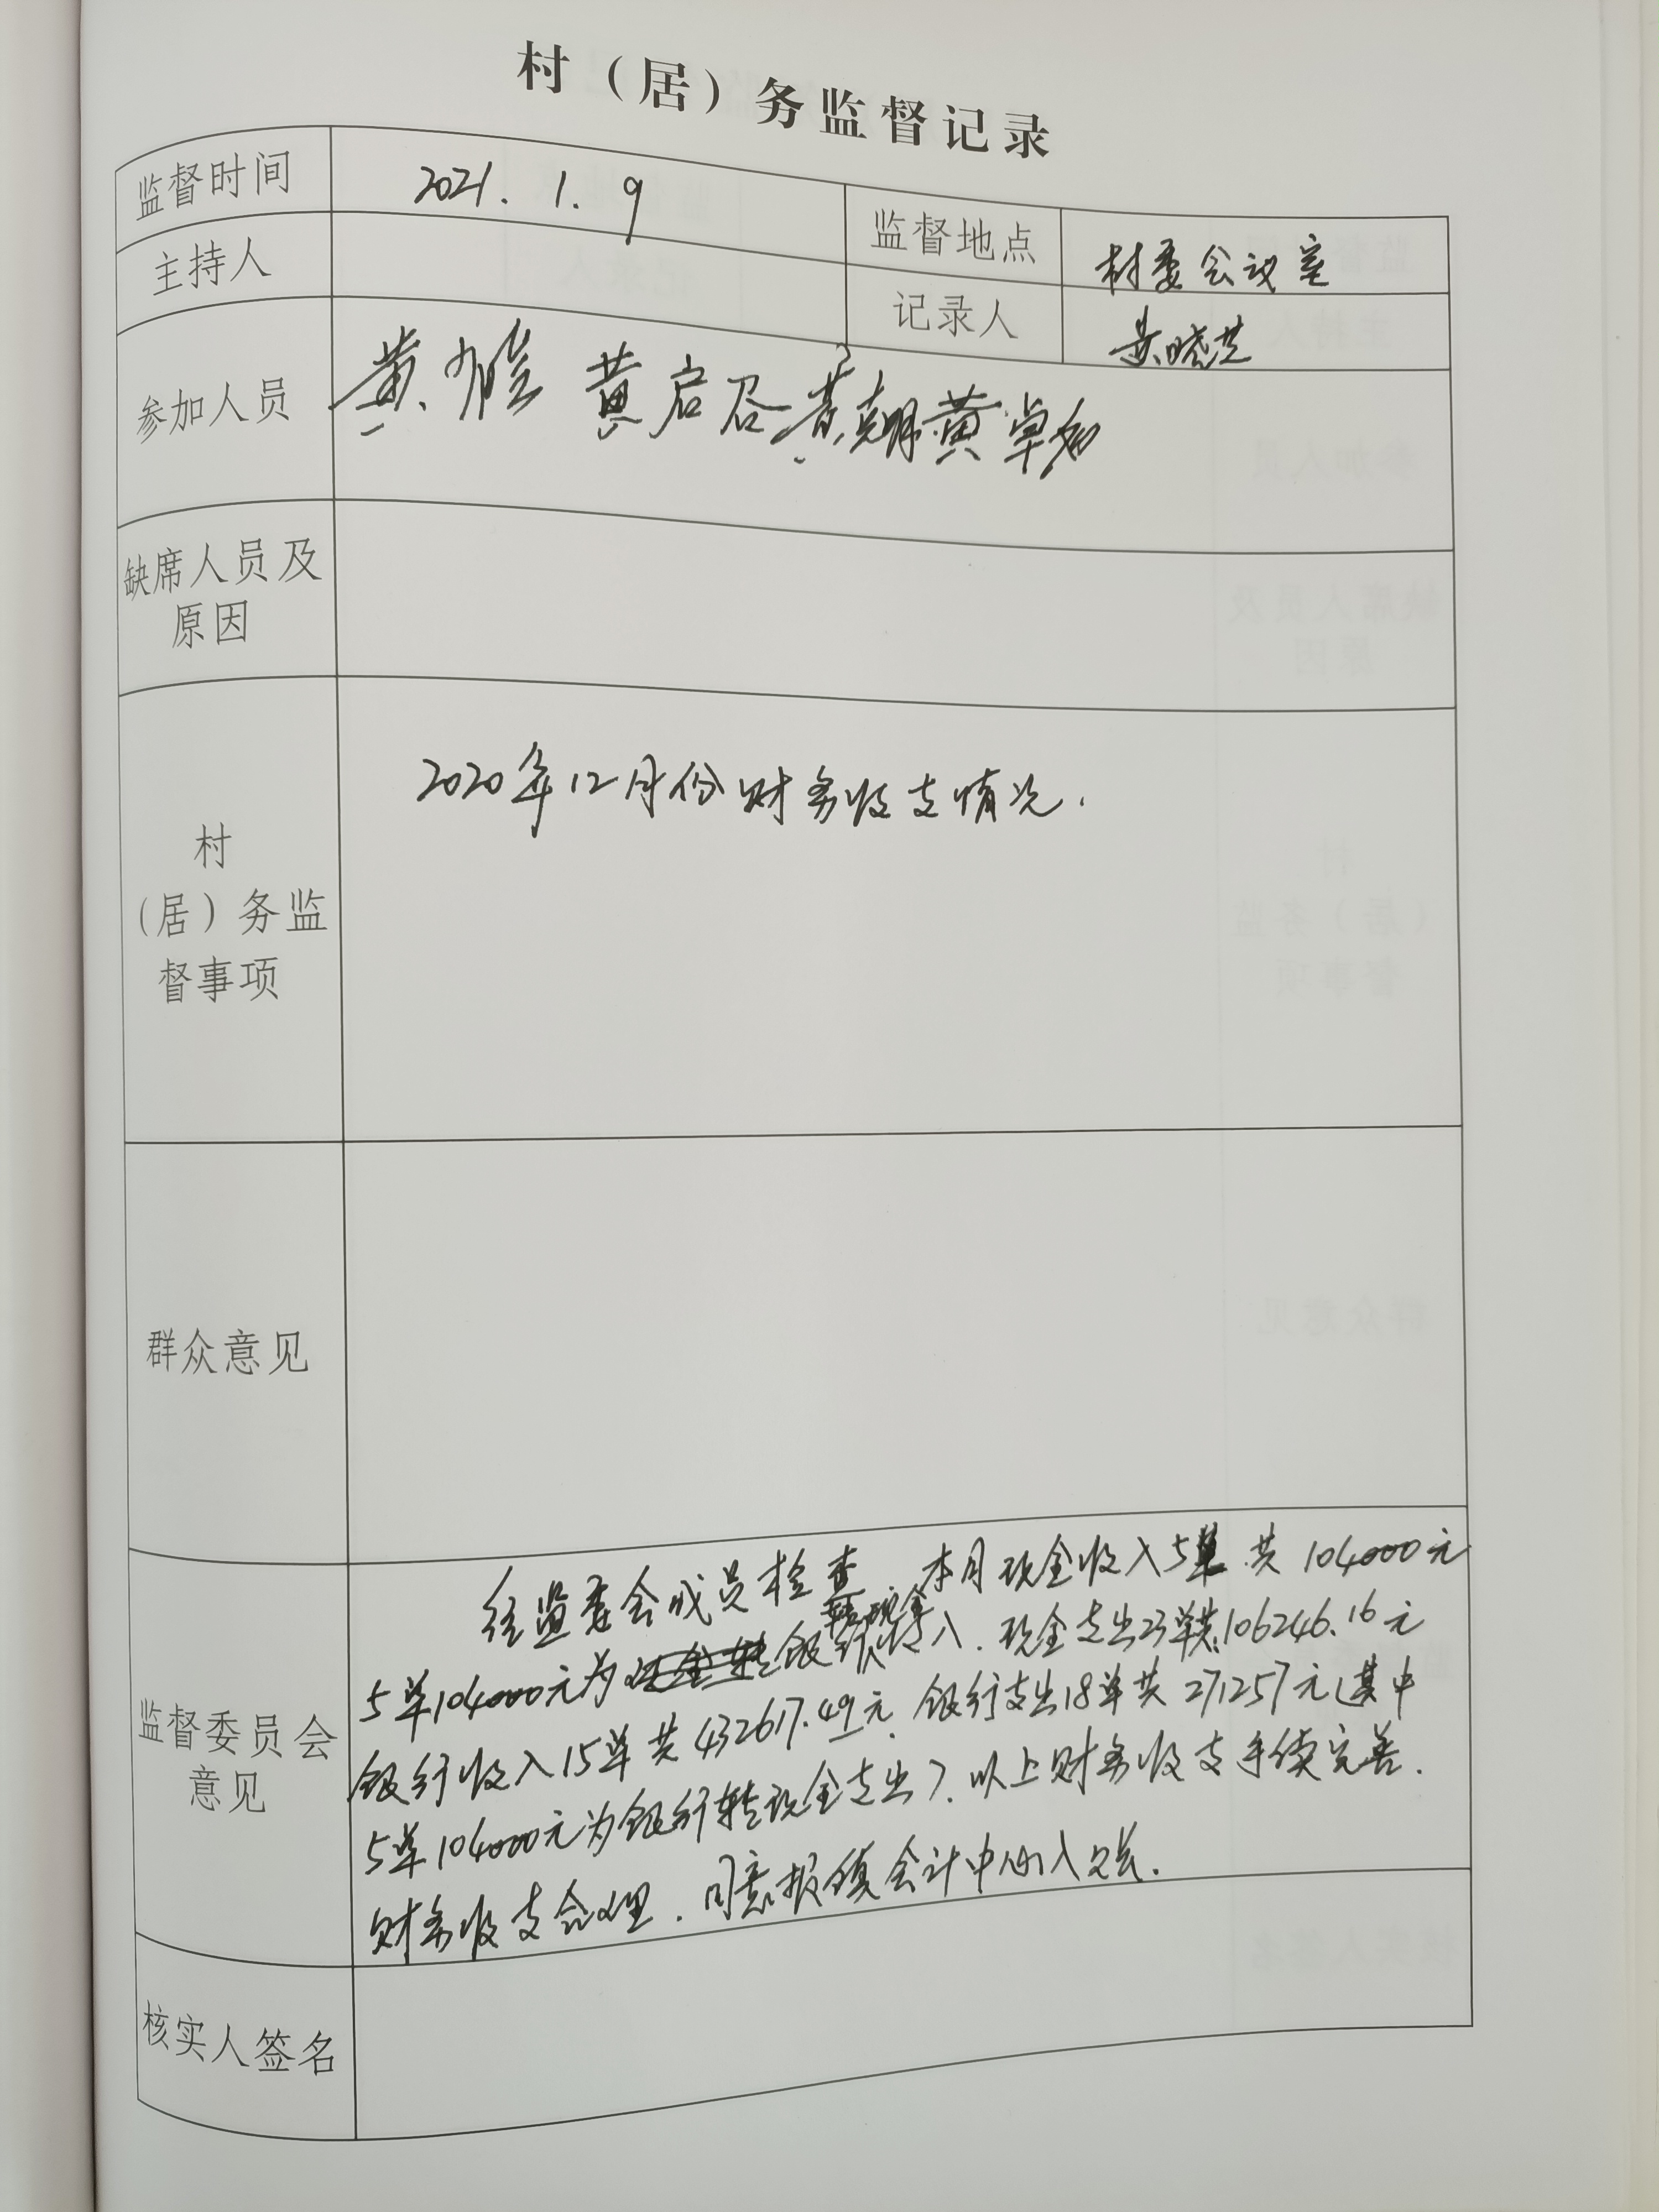 村（居）务监督记录
监督时间 2021.1.9 监督地点 村委会议室
主持人 记录人 黄晓
参加人员 黄 黄启 黄 黄卓
缺席人员及
原因
2020年12月份财务收支情况.
村
（居）务监
督事项
群众意见
经监委会成员检查 本月现金收入5单共104000元
5单104000元为银行转现金收入.现金支出23单共106246.16元
银行收入15单共432617.49元.银行支出18单共271257元(其中
5单104000元为银行转现金支出).以上财务收支手续完善.
财务收支合理.同意报镇会计中心入
监督委员会
意见
核实人签名